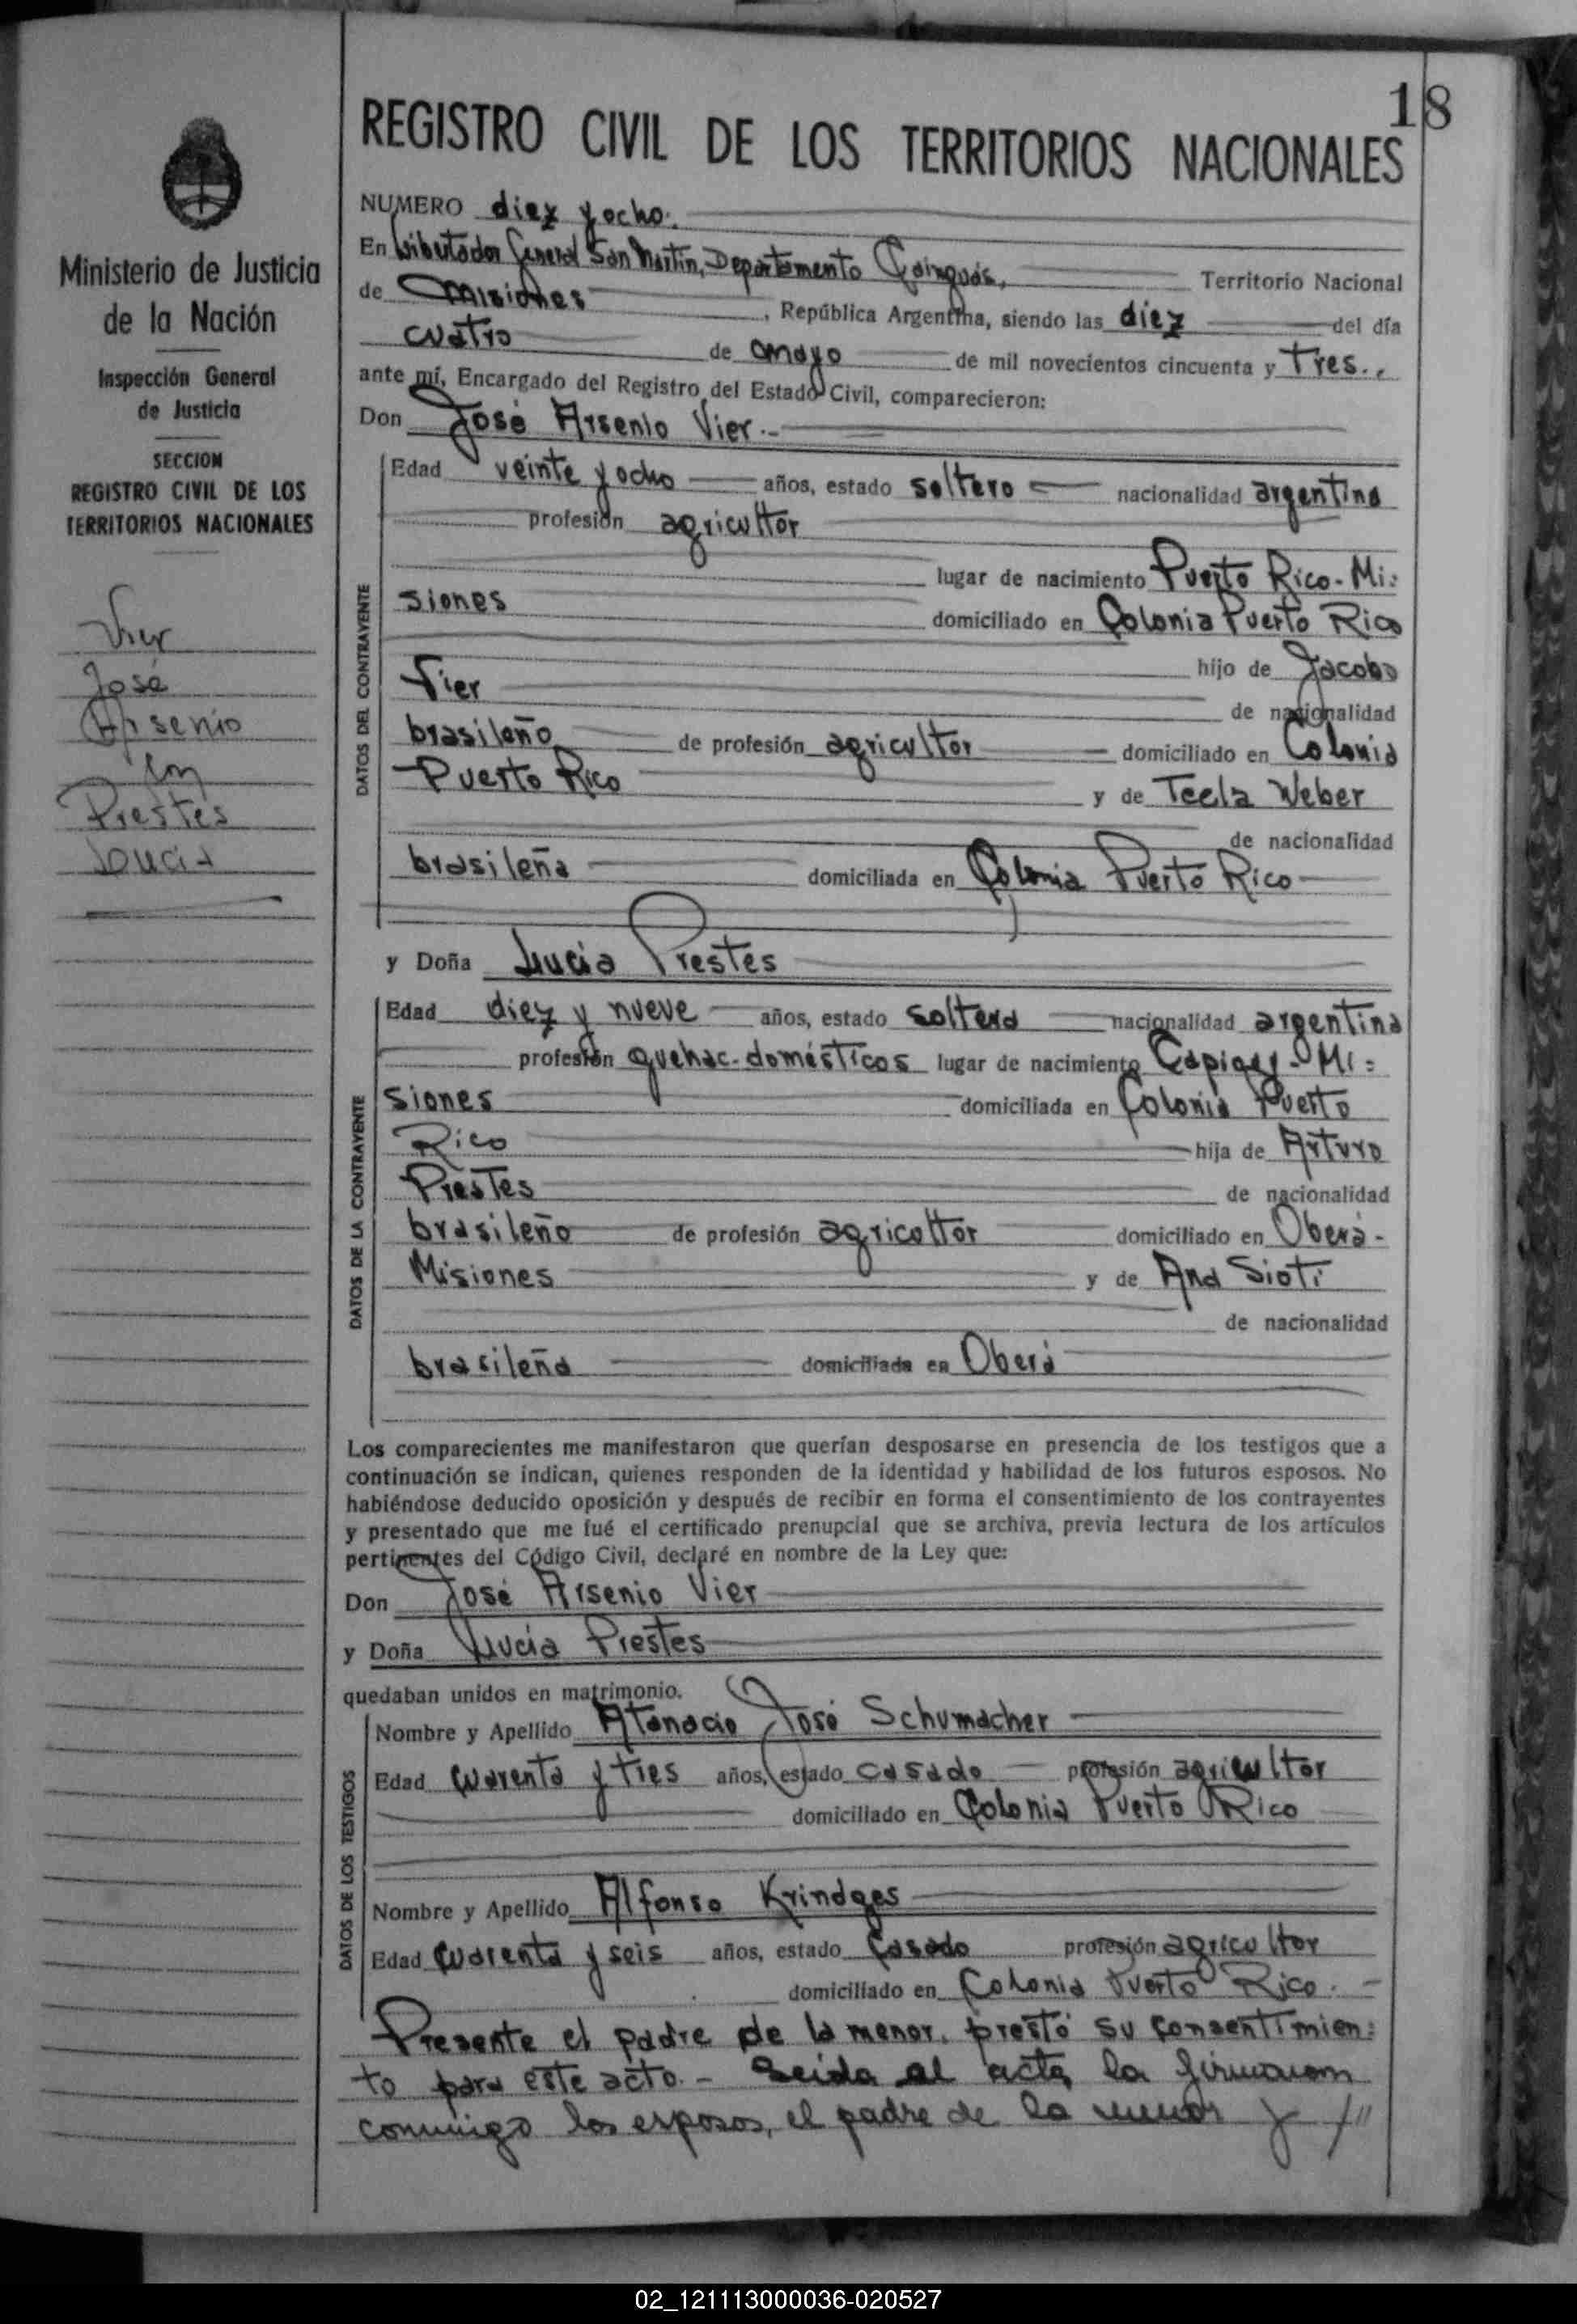 18
REGISTRO CIVIL DE LOS TERRITORIOS NACIONALES
Ministerio de Justicia
de la Nación
Inspección General
de Justicia
SECCION
REGISTRO CIVIL DE LOS
TERRITORIOS NACIONALES
Vier
José
Arsenio
con
Prestes
Lucia
NUMERO diez y ocho.
En Libertador General San Martín, Departamento Cainguás, Territorio Nacional
de Misiones, República Argentina, siendo las diez del día
cuatro de mayo de mil novecientos cincuenta y tres.,
ante mí, Encargado del Registro del Estado Civil, comparecieron:
Don José Arsenio Vier.-
DATOS DEL CONTRAYENTE
Edad veinte y ocho años, estado soltero nacionalidad argentina
profesión agricultor
lugar de nacimiento Puerto Rico-Mi:
siones domiciliado en Colonia Puerto Rico
hijo de Jacobo
Vier de nacionalidad
brasileño de profesión agricultor domiciliado en Colonia
Puerto Rico y de Tecla Weber
de nacionalidad
brasileña domiciliada en Colonia Puerto Rico
y Doña Lucia Prestes
DATOS DE LA CONTRAYENTE
Edad diez y nueve años, estado soltera nacionalidad argentina
profesión quehac-domésticos lugar de nacimiento Mi:
siones domiciliada en Colonia Puerto
Rico hija de Arturo
Prestes de nacionalidad
brasileño de profesión agricultor domiciliado en Oberá-
Misiones y de Ana Sioti
de nacionalidad
brasileña domiciliada en Oberá
Los comparecientes me manifestaron que querían desposarse en presencia de los testigos que a
continuación se indican, quienes responden de la identidad y habilidad de los futuros esposos. No
habiéndose deducido oposición y después de recibir en forma el consentimiento de los contrayentes
y presentado que me fué el certificado prenupcial que se archiva, previa lectura de los artículos
pertinentes del Código Civil, declaré en nombre de la Ley que:
Don José Arsenio Vier
y Doña Lucia Prestes
quedaban unidos en matrimonio.
DATOS DE LOS TESTIGOS
Nombre y Apellido Atanacio José Schumacher
Edad cuarenta y tres años, estado casado profesión agricultor
domiciliado en Colonia Puerto Rico
Nombre y Apellido Alfonso Krindges
Edad cuarenta y seis años, estado casado profesión agricultor
domiciliado en Colonia Puerto Rico.-
Presente el padre de la menor, prestó su consentimien:
to para este acto.- Leida el acta la firmaron
conmigo los esposos, el padre de la menor y //
02_121113000036-020527